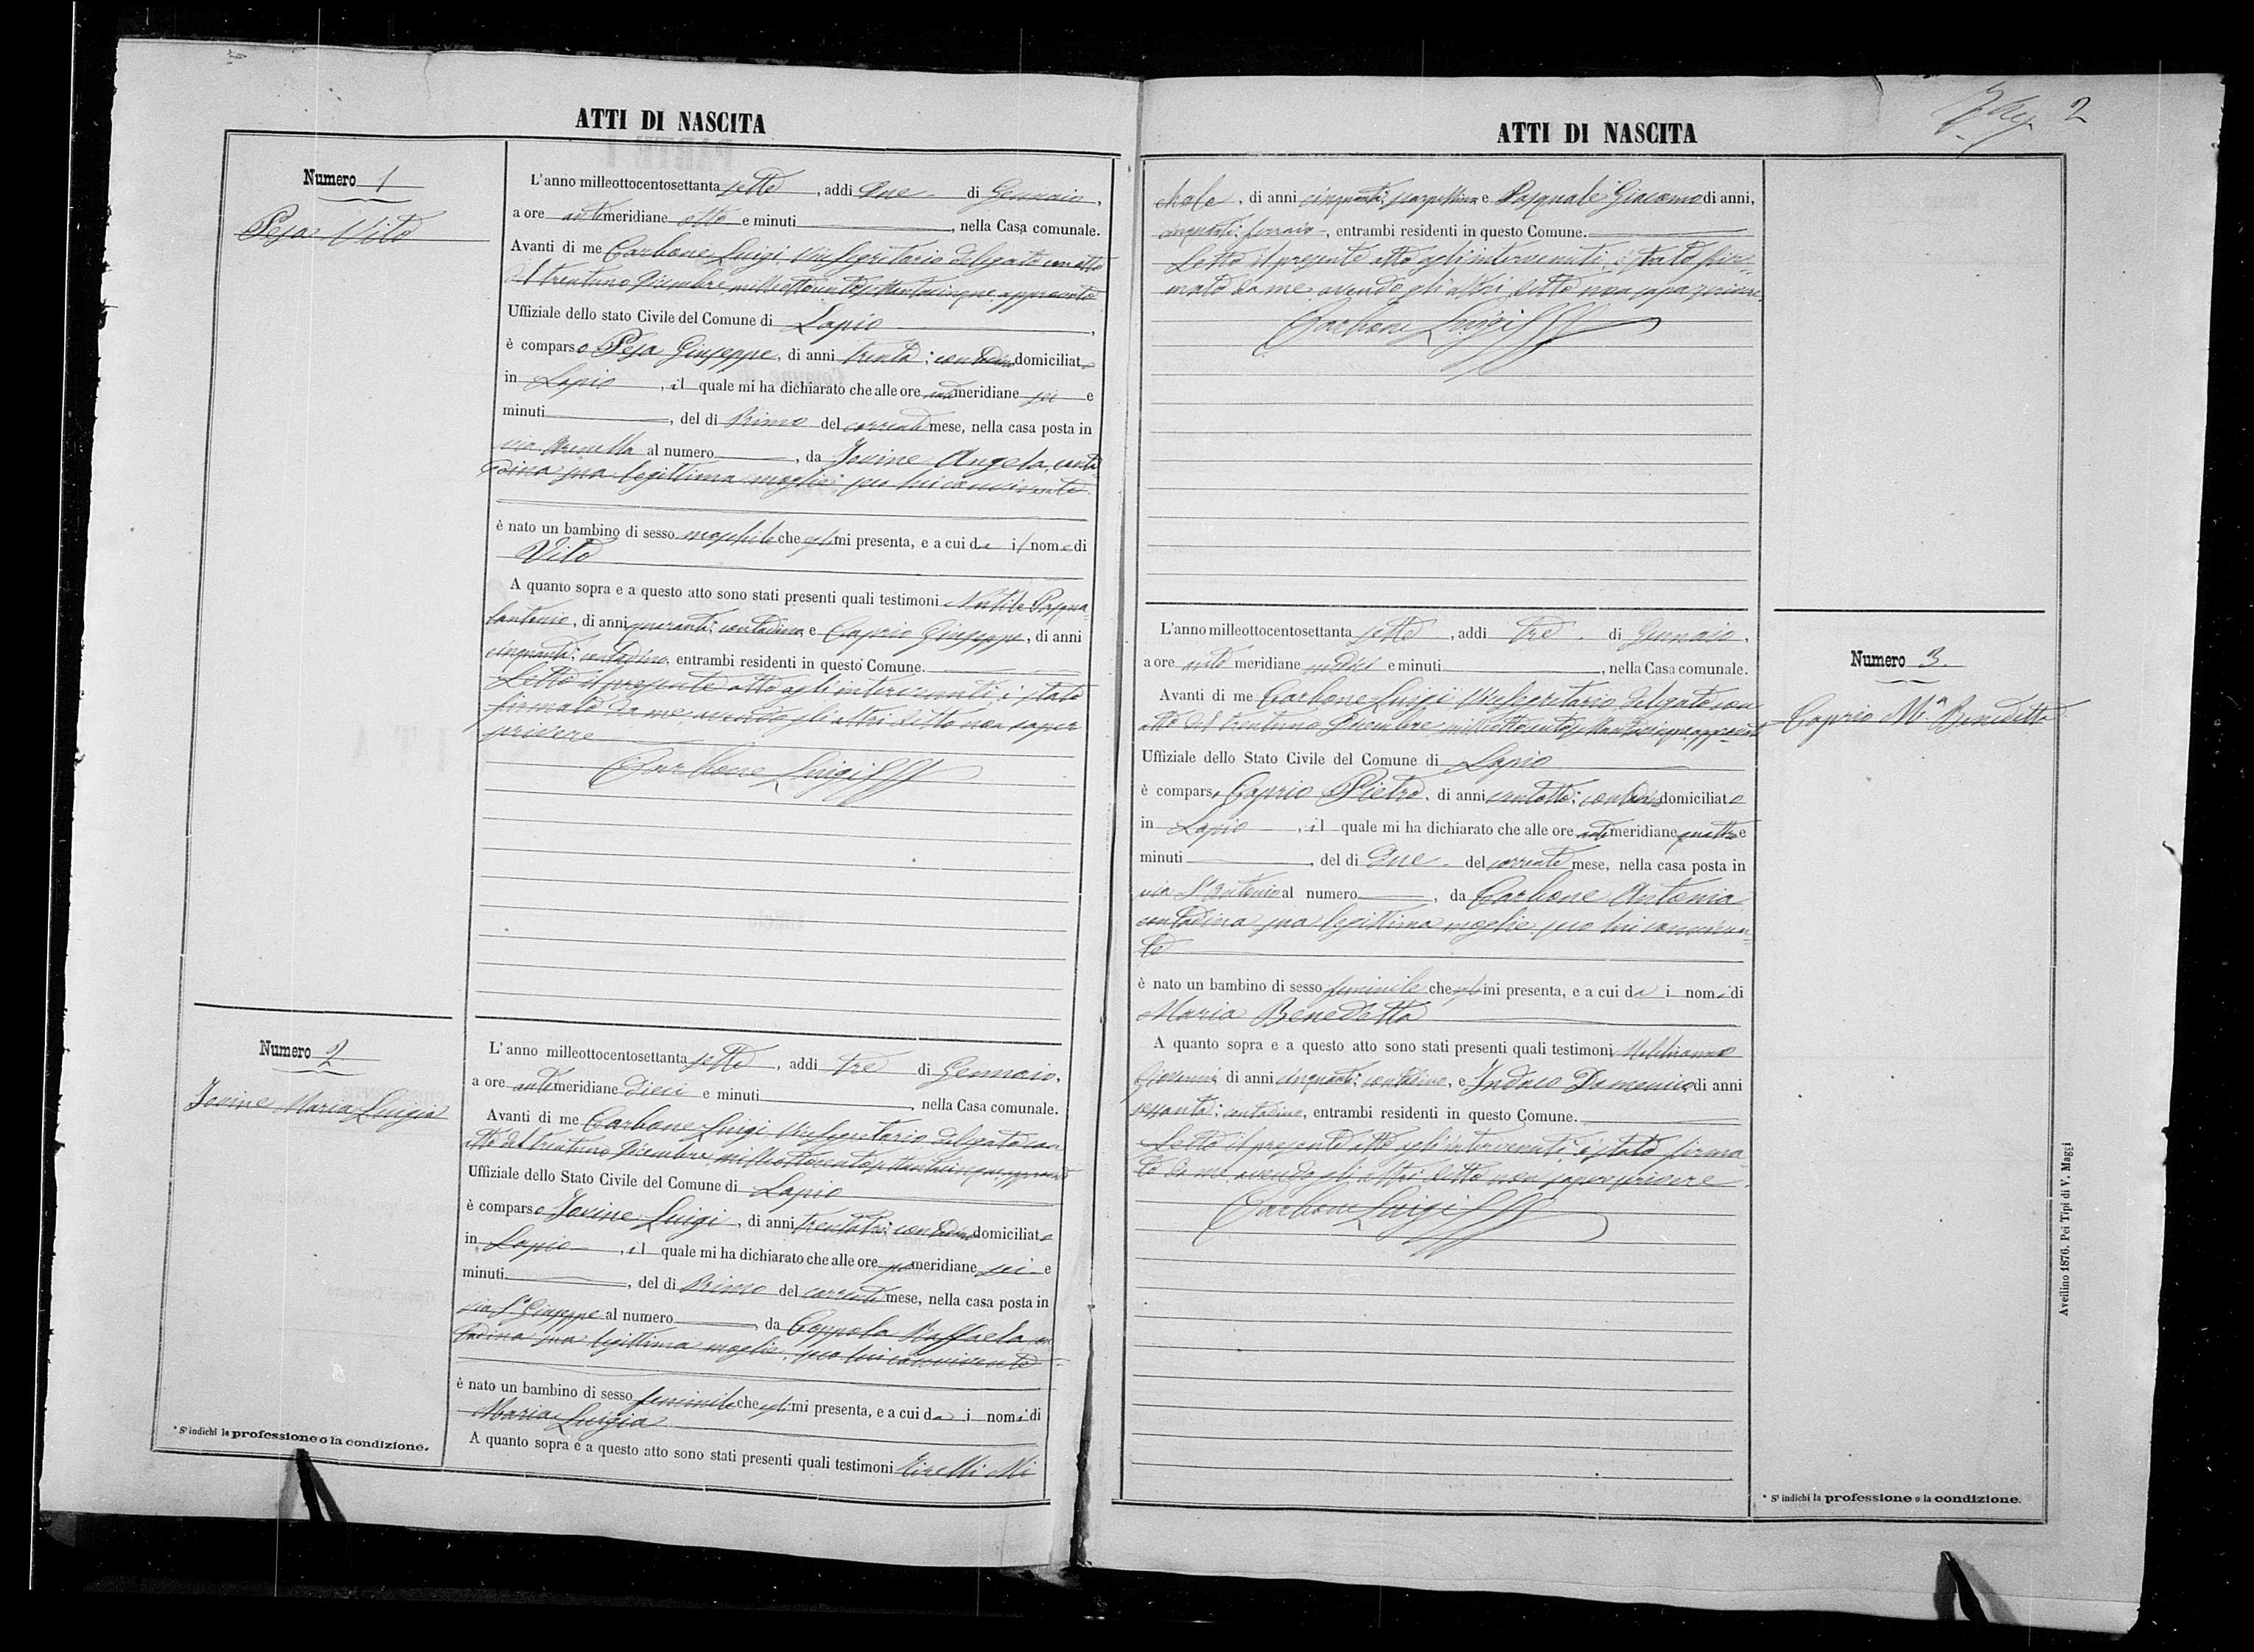 ATTI DI NASCITA
Numero 1
Pesa Vito
L'anno milleottocentosettanta sette, addi due di Gennaio,
a ore antimeridiane otto e minuti, nella Casa comunale.
Avanti di me Carbone Luigi Vice Segretario delegato con atto
del trentuno Dicembre milleottocentosettantacinque approvato
Uffiziale dello stato Civile del Comune di Lapio,
è comparso Pesa Giuseppe, di anni trenta; contadino domiciliato
in Lapio, il quale mi ha dichiarato che alle ore antimeridiane sei e
minuti, del di Primo del corrente mese, nella casa posta in
via al numero, da Jovine Angela, conta
dina sua legittima moglie, seco lui convivente
è nato un bambino di sesso maschile che egli mi presenta, e a cui da il nome di
Vito
A quanto sopra e a questo atto sono stati presenti quali testimoni Pasqua
lantonio, di anni quaranta; contadino, e Caprio Giuseppe, di anni
cinquanta; contadino, entrambi residenti in questo Comune.
Letto il presente atto agli intervenuti, è stato
firmato da me, avendo gli altri detto non saper
scrivere
Carbone Luigi
Numero 2
Jovine Maria Luigia
L'anno milleottocentosettanta sette, addi tre di Gennaio,
a ore antimeridiane dieci e minuti, nella Casa comunale.
Avanti di me Carbone Luigi Vice Segretario delegato con
atto del trentuno Dicembre milleottocentosettantacinque approvato
Uffiziale dello Stato Civile del Comune di Lapio
è comparso Jovine Luigi, di anni trentatre; contadino domiciliato
in Lapio, il quale mi ha dichiarato che alle ore pomeridiane sei e
minuti, del di Primo del corrente mese, nella casa posta in
via S. Giuseppe al numero, da Coppola Raffaela con
tadina sua legittima moglie, seco lui convivente
è nato un bambino di sesso feminile che egli mi presenta, e a cui da i nomi di
Maria Luigia
A quanto sopra e a questo atto sono stati presenti quali testimoni Mi
* S'indichi la professione o la condizione.
ATTI DI NASCITA
2
chele, di anni cinquanta; scarpellino e Pasquale Giacomo di anni,
cinquanta; ferraio, entrambi residenti in questo Comune.
Letto il presente atto agli intervenuti, è stato fir-
mato da me avendo gli altri detto non saper scrivere
Carbone Luigi
Numero 3.
Caprio M.a Benedetta
L'anno milleottocentosettanta sette, addi tre di Gennaio,
a ore anti meridiane undici e minuti, nella Casa comunale.
Avanti di me Carbone Luigi Vice Segretario delegato con
atto del trentuno Dicembre milleottocentosettantacinque approvato
Uffiziale dello Stato Civile del Comune di Lapio
è comparso Caprio Pietro, di anni contadino domiciliato
in Lapio, il quale mi ha dichiarato che alle ore antimeridiane quattro e
minuti, del di due del corrente mese, nella casa posta in
via S. Antonio al numero, da Carbone Antonia
contadina sua legittima moglie seco lui conviven-
te
è nato un bambino di sesso feminile che egli mi presenta, e a cui da i nomi di
Maria Benedetta
A quanto sopra e a questo atto sono stati presenti quali testimoni
Giovanni di anni cinquanta; contadino, e Indaco Domenico di anni
sessanta; contadino, entrambi residenti in questo Comune.
Letto il presente atto agli intervenuti è stato firma
to da me avendo gli altri detto non saper scrivere
Carbone Luigi
* S'indichi la professione o la condizione.
Avellino 1876. Pei Tipi di V. Maggi